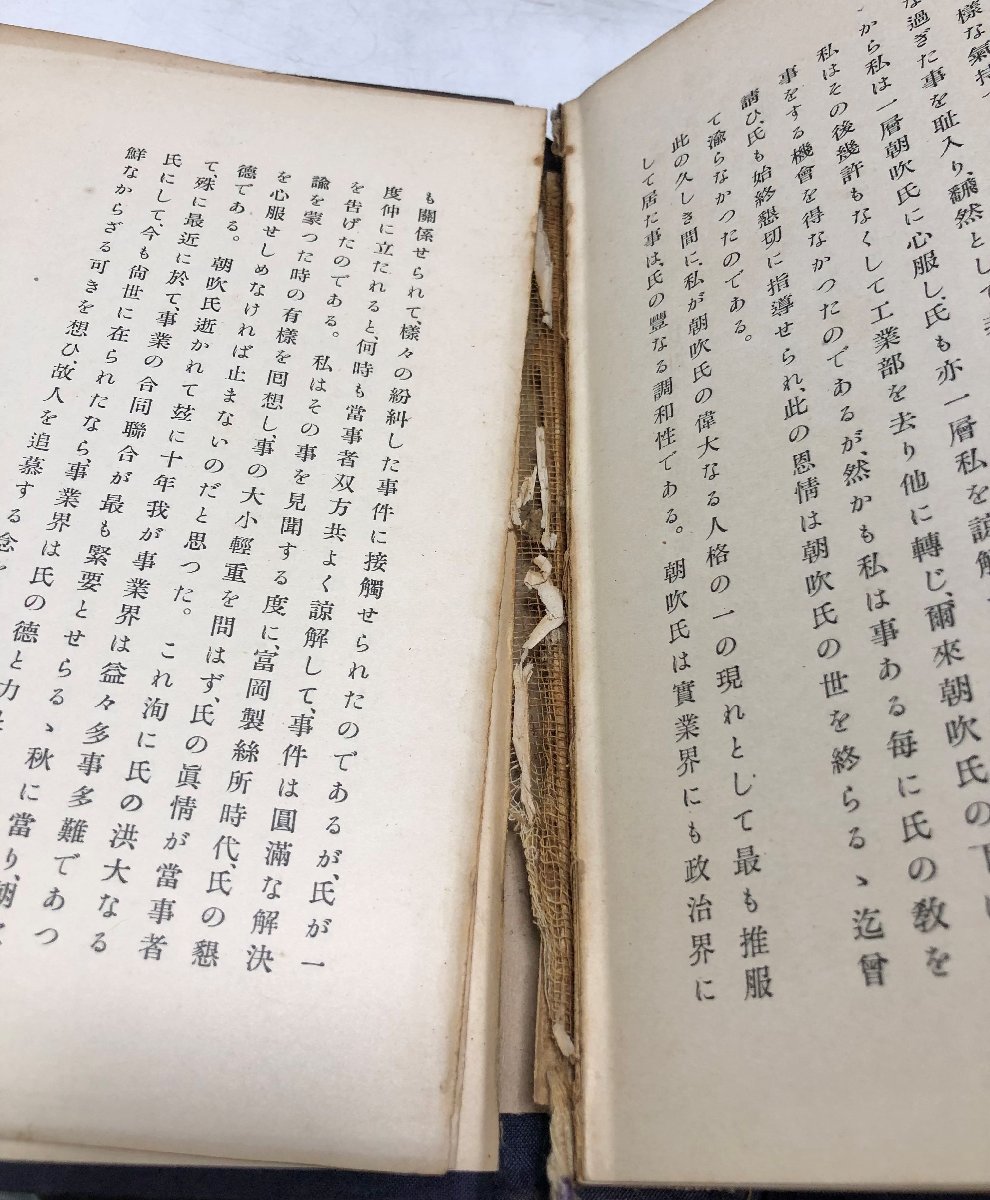 樣な氣持
な過ぎた事を耻入り、飜然として
から私は一層朝吹氏に心服し、氏も亦一層私を諒解
私はその後幾許もなくして工業部を去り他に轉じ、爾來朝吹氏の下に
事をする機會を得なかつたのであるが、然かも私は事ある每に氏の敎を
請ひ、氏も始終懇切に指導せられ、此の恩情は朝吹氏の世を終らるゝ迄曾
て渝らなかつたのである。
此の久しき間に、私が朝吹氏の偉大なる人格の一の現れとして最も推服
して居た事は、氏の豐なる調和性である。朝吹氏は實業界にも政治界に
も關係せられて、樣々の紛糾した事件に接觸せられたのであるが、氏が一
度仲に立たれると、何時も當事者双方共よく諒解して、事件は圓滿な解決
を告げたのである。私はその事を見聞する度に、富岡製絲所時代、氏の懇
諭を蒙つた時の有樣を囘想し、事の大小輕重を問はず、氏の眞情が當事者
を心服せしめなければ止まないのだと思つた。これ洵に氏の洪大なる
德である。朝吹氏逝かれて玆に十年我が事業界は益々多事多難であつ
て、殊に最近に於て、事業の合同聯合が最も緊要とせらるゝ秋に當り、朝
氏にして、今も尙世に在られたなら、事業界は氏の德と力
鮮なからざる可きを想ひ、故人を追慕する念